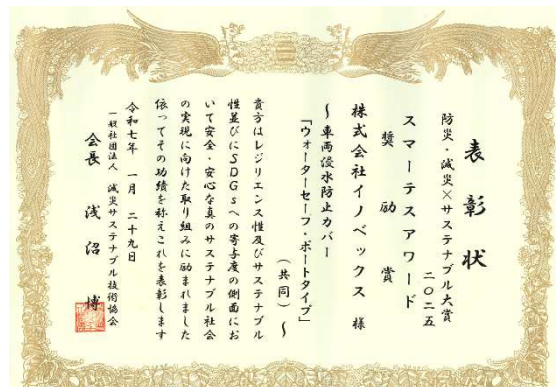 表彰状
防災・減災×サステナブル大賞
二〇二五
スマーテスアワード
奨励賞
株式会社イノベックス 様
～車両浸水防止カバー
「ウォーターセーフ・ボートタイプ」
（共同）～
貴方はレジリエンス性及びサステナブル
性並びにSDGsへの寄与度の側面にお
いて安全・安心な真のサステナブル社会
の実現に向けた取り組みに励まれました
依ってその功績を称えこれを表彰します
令和七年 一月 二十九日
一般社団法人 減災サステナブル技術協会
会長 浅沼 博